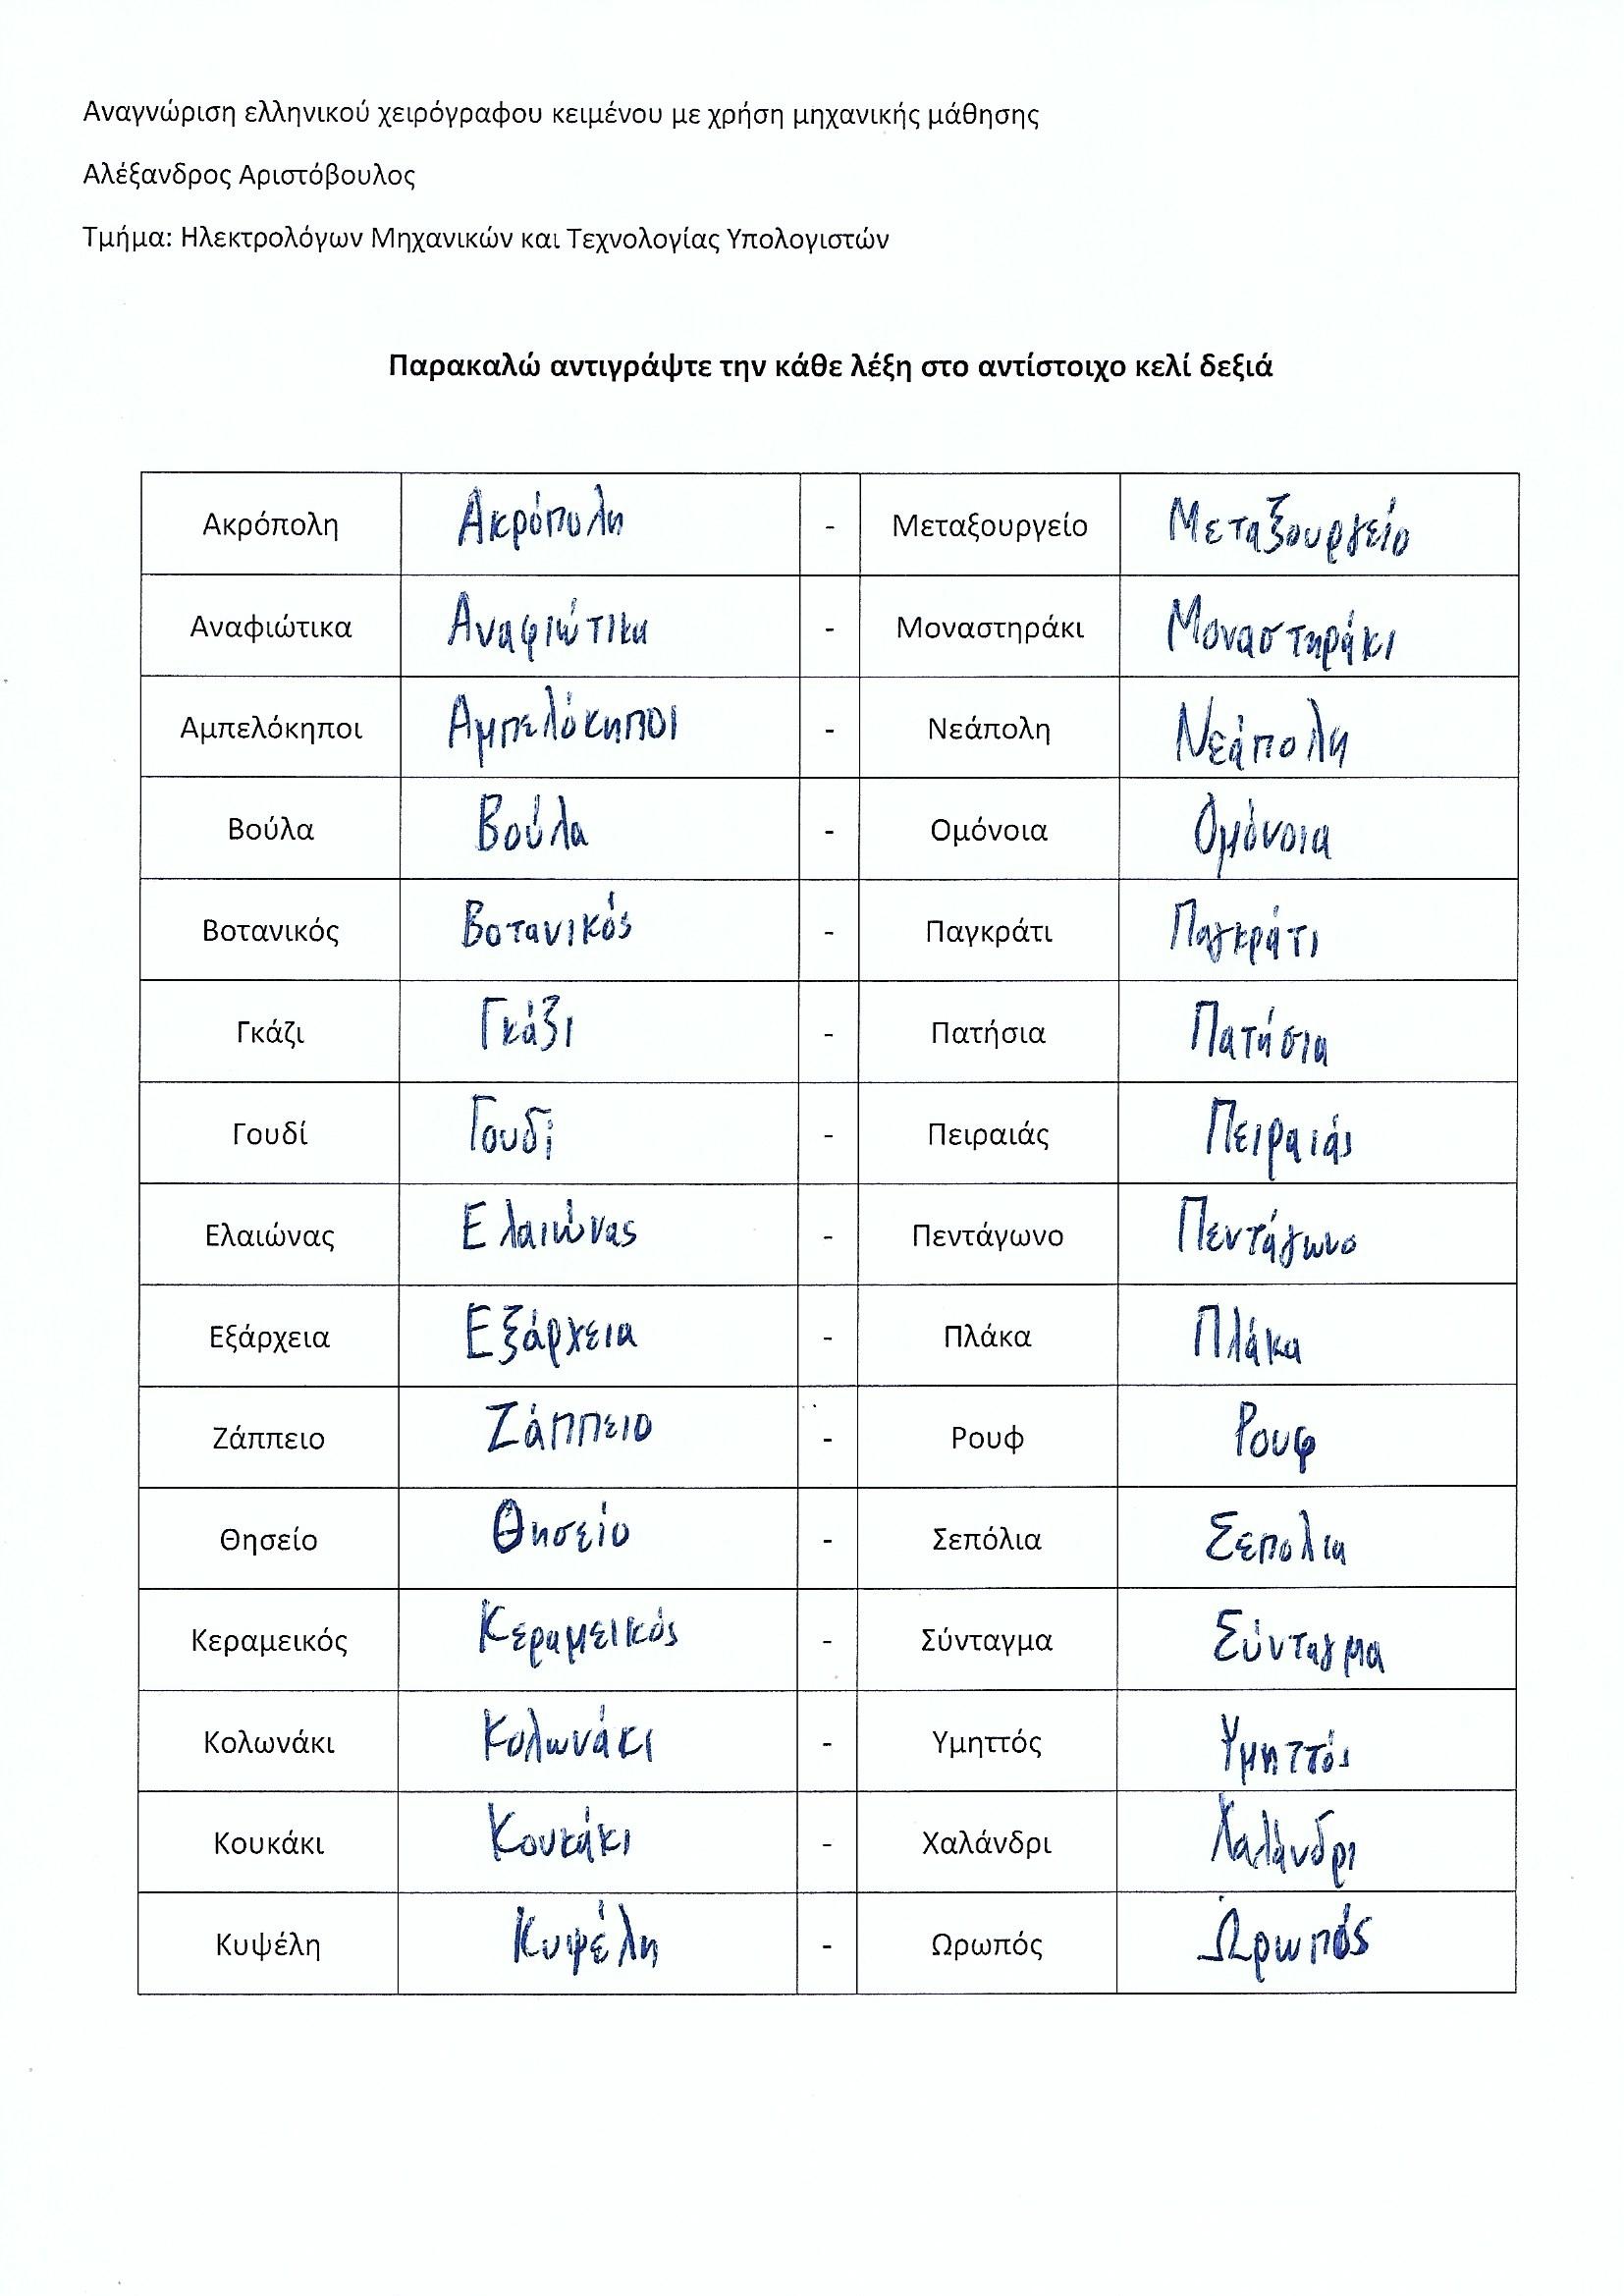 Αναγνώριση ελληνικού χειρόγραφου κειμένου με χρήση μηχανικής μάθησης
Αλέξανδρος Αριστόβουλος
Τμήμα: Ηλεκτρολόγων Μηχανικών και Τεχνολογίας Υπολογιστών
Παρακαλώ αντιγράψτε την κάθε λέξη στο αντίστοιχο κελί δεξιά
Ακρόπολη Ακρόπολη - Μεταξουργείο Μεταξουργείο
Αναφιώτικα Αναφιώτικα - Μοναστηράκι Μοναστηράκι
Αμπελόκηποι Αμπελόκηποι - Νεάπολη Νεάπολη
Βούλα Βούλα - Ομόνοια Ομόνοια
Βοτανικός Βοτανικός - Παγκράτι Παγκράτι
Γκάζι Γκάζι - Πατήσια Πατήσια
Γουδί Γουδί - Πειραιάς Πειραιάς
Ελαιώνας Ελαιώνας - Πεντάγωνο Πεντάγωνο
Εξάρχεια Εξάρχεια - Πλάκα Πλάκα
Ζάππειο Ζάππειο - Ρουφ Ρουφ
Θησείο Θησείο - Σεπόλια Σεπολια
Κεραμεικός Κεραμεικός - Σύνταγμα Σύνταγμα
Κολωνάκι Κολωνάκι - Υμηττός Υμηττός
Κουκάκι Κουκάκι - Χαλάνδρι Χαλάνδρι
Κυψέλη Κυψέλη - Ωρωπός Ωρωπός